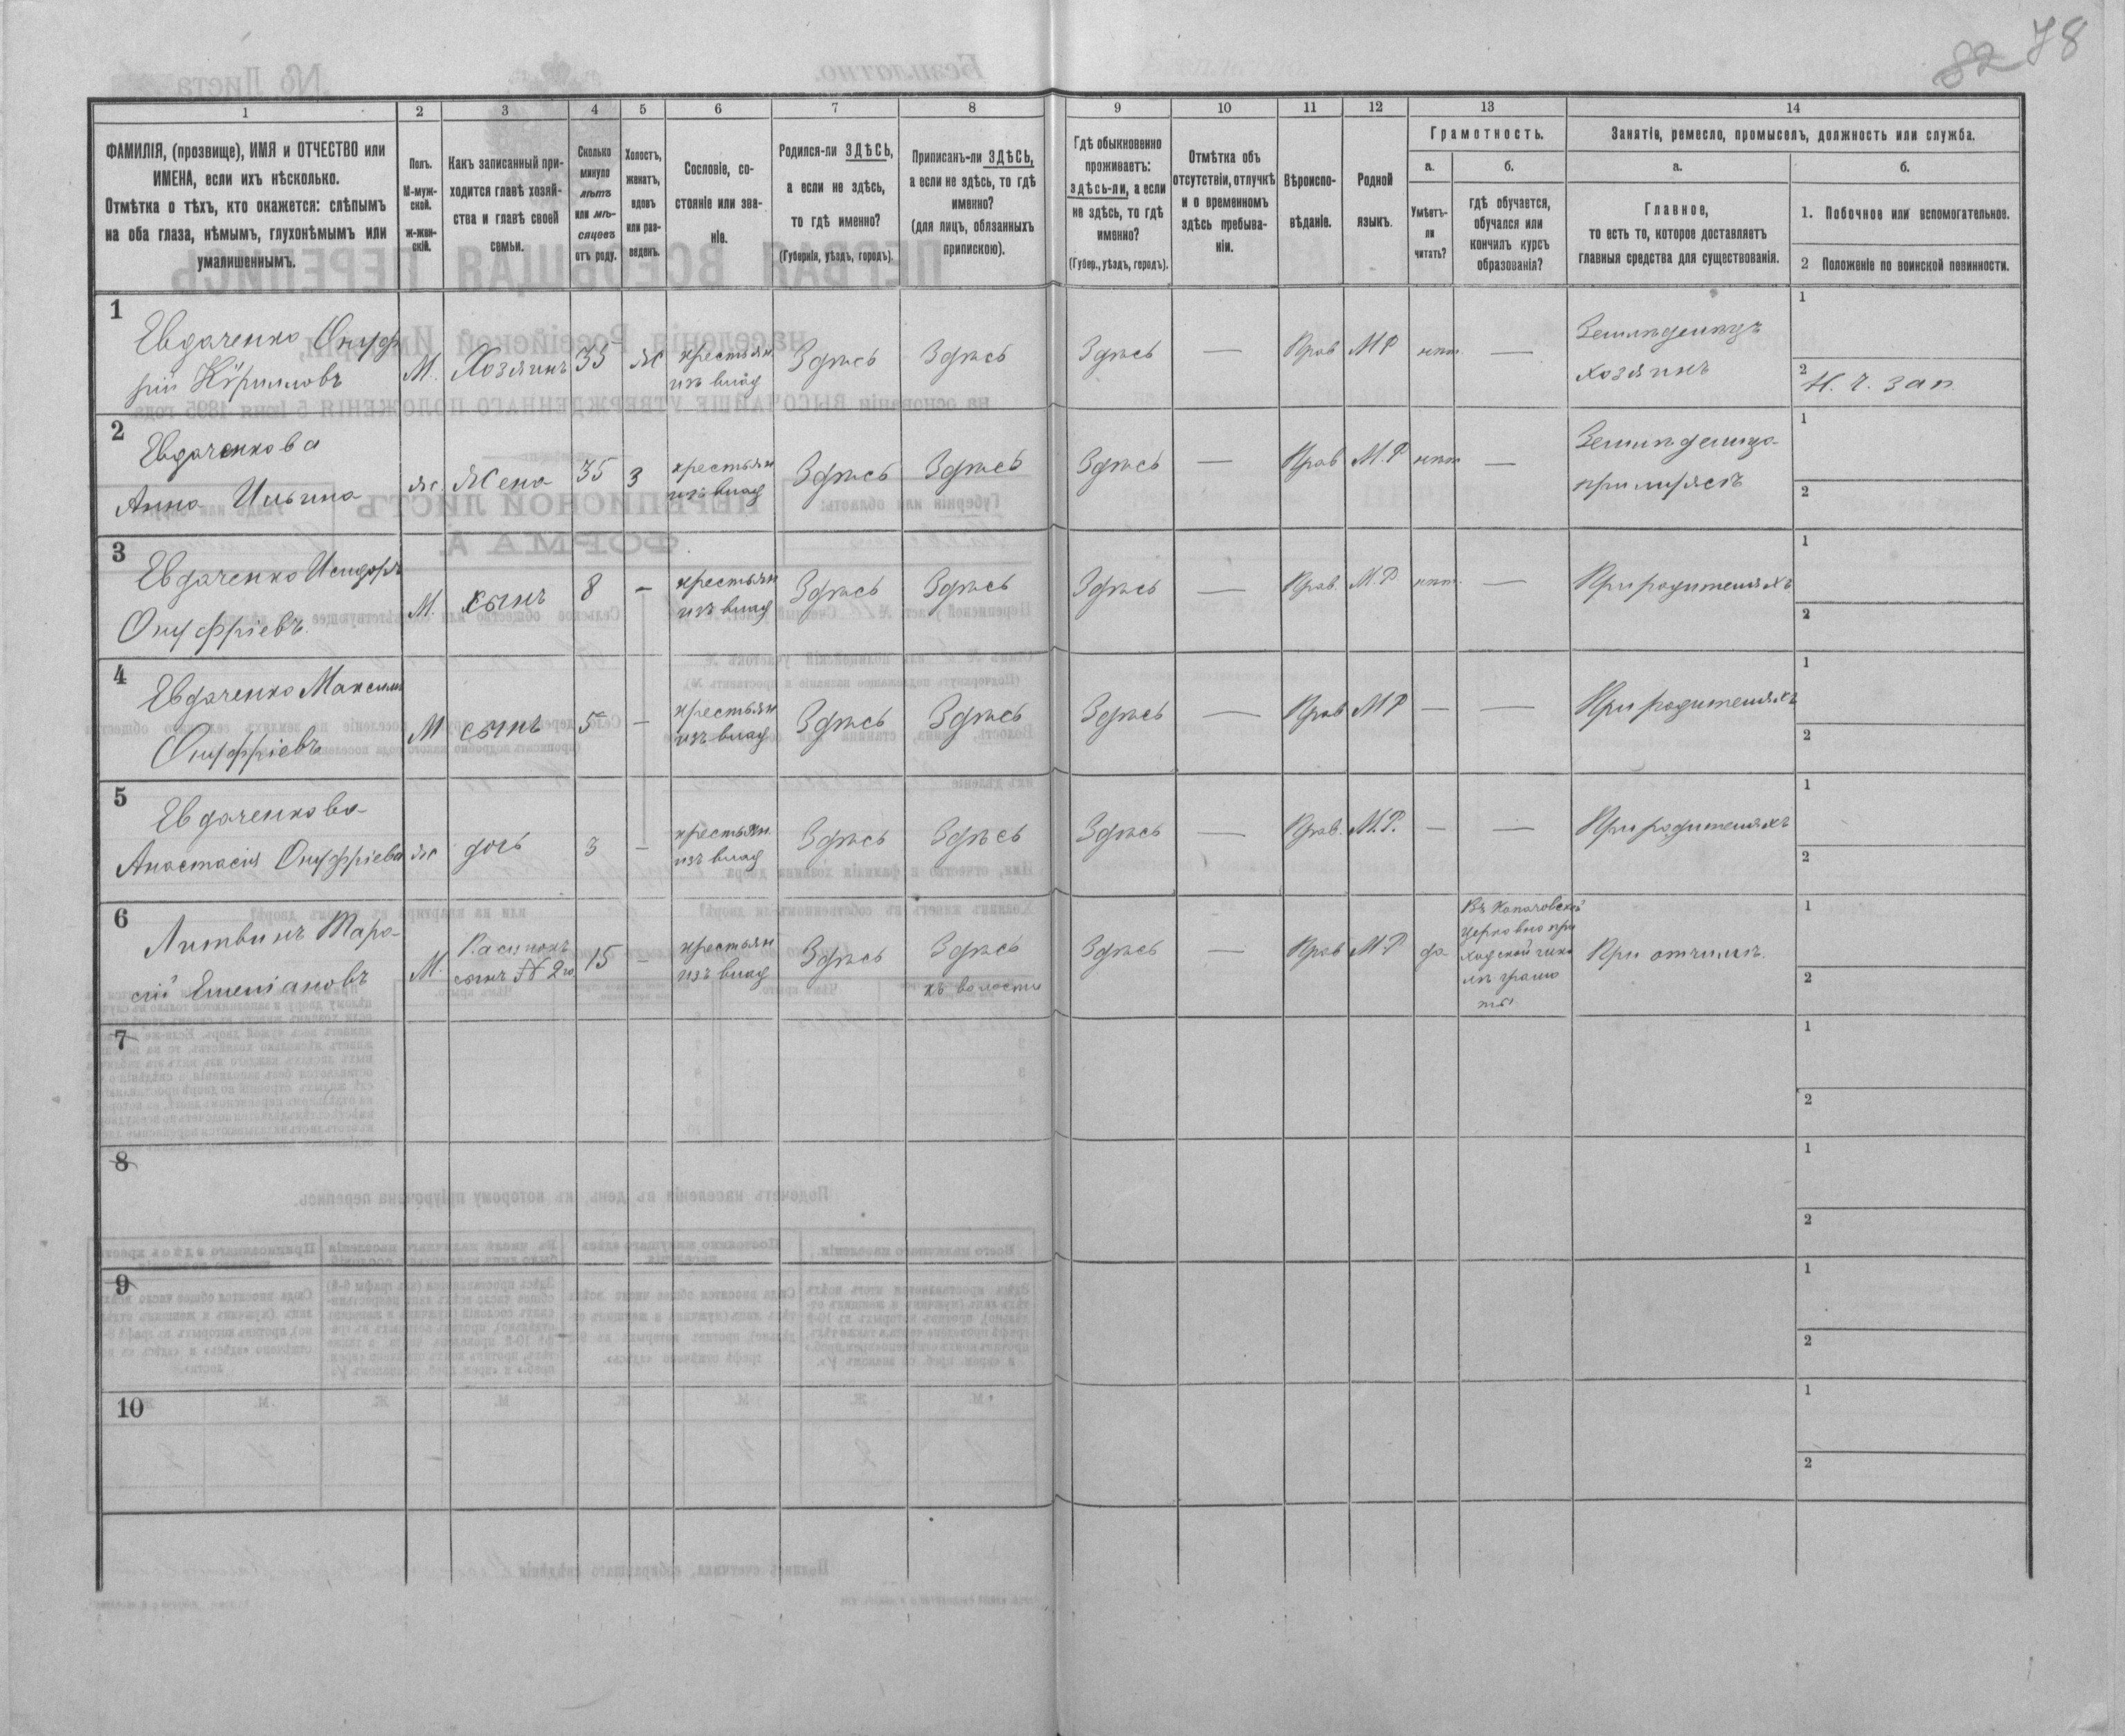 82 78
1 2 3 4 5 6 7 8 9 10 11 12 13 14
ФАМИЛІЯ, (прозвище), ИМЯ и ОТЧЕСТВО или
ИМЕНА, если ихъ нѣсколько.
Отмѣтка о тѣхъ, кто окажется: слѣпымъ
на оба глаза, нѣмымъ, глухонѣмымъ или
умалишеннымъ.
Полъ.
М-муж-
ской.
ж-жен-
скій.
Какъ записанный при-
ходится главѣ хозяй-
ства и главѣ своей
семьи.
Сколько
минуло
лѣтъ
или мѣ-
сяцевъ
отъ роду.
Холостъ,
женатъ,
вдовъ
или раз-
веденъ.
Сословіе, со-
стояніе или зва-
ніе.
Родился-ли ЗДѢСЬ,
а если не здѣсь,
то гдѣ именно?
(Губернія, уѣздъ, городъ).
Приписанъ-ли ЗДѢСЬ,
а если не здѣсь, то гдѣ
именно?
(для лицъ, обязанныхъ
припискою).
Гдѣ обыкновенно
проживаетъ:
здѣсь-ли, а если
не здѣсь, то гдѣ
именно?
(Губер., уѣздъ, городъ).
Отмѣтка объ
отсутствіи, отлучкѣ
и о временномъ
здѣсь пребыва-
ніи.
Вѣроиспо-
вѣданіе.
Родной
языкъ.
Грамотность.
а.
Умѣетъ-
ли
читать?
б.
гдѣ обучается,
обучался или
кончилъ курсъ
образованія?
Занятіе, ремесло, промыселъ, должность или служба.
а.
Главное,
то есть то, которое доставляетъ
главныя средства для существованія.
б.
1. Побочное или вспомогательное.
2 Положеніе по воинской повинности.
1
Евдаченко Онуф
рій Кириловъ
М. Хозяинъ 35 Ж
крестьян
изъ влад
Здѣсь Здѣсь Здѣсь — Прав МР нѣт —
Земледелецъ
хозяинъ
1
2 Н. ч. зап.
2
Евдаченкова
Анна Ильина
Ж Жена 35 З
крестьян
изъ влад
Здѣсь Здѣсь Здѣсь — Прав М.Р нѣт —
Земледелица
при мужѣ
1
2
3
Евдаченко Исидоръ
Онуфріевъ
М. сынъ 8 —
крестьян
изъ влад
Здѣсь Здѣсь Здѣсь — Прав. М.Р нѣт. —
При родителяхъ
1
2
4
Евдаченко Максимъ
Онуфріевъ
М сынъ 5 —
крестьян
изъ влад
Здѣсь Здѣсь Здѣсь — Прав МР — —
При родителяхъ
1
2
5
Евдаченкова
Анастасія Онуфріева
Ж дочь 3 —
крестьян
изъ влад
Здѣсь Здѣсь Здѣсь — Прав. М.Р. — —
При родителяхъ
1
2
6
Литвинъ Тара-
сій Емеліановъ
М.
Пасынокъ
сынъ № 2го
15 —
крестьян
изъ влад
Здѣсь
Здѣсь
къ волости
Здѣсь — Прав М.Р да
Въ Копачовской
церковно при
ходской шко
лѣ грамо
ты
При отчимѣ.
1
2
7
1
2
8
1
2
9
1
2
10
1
2